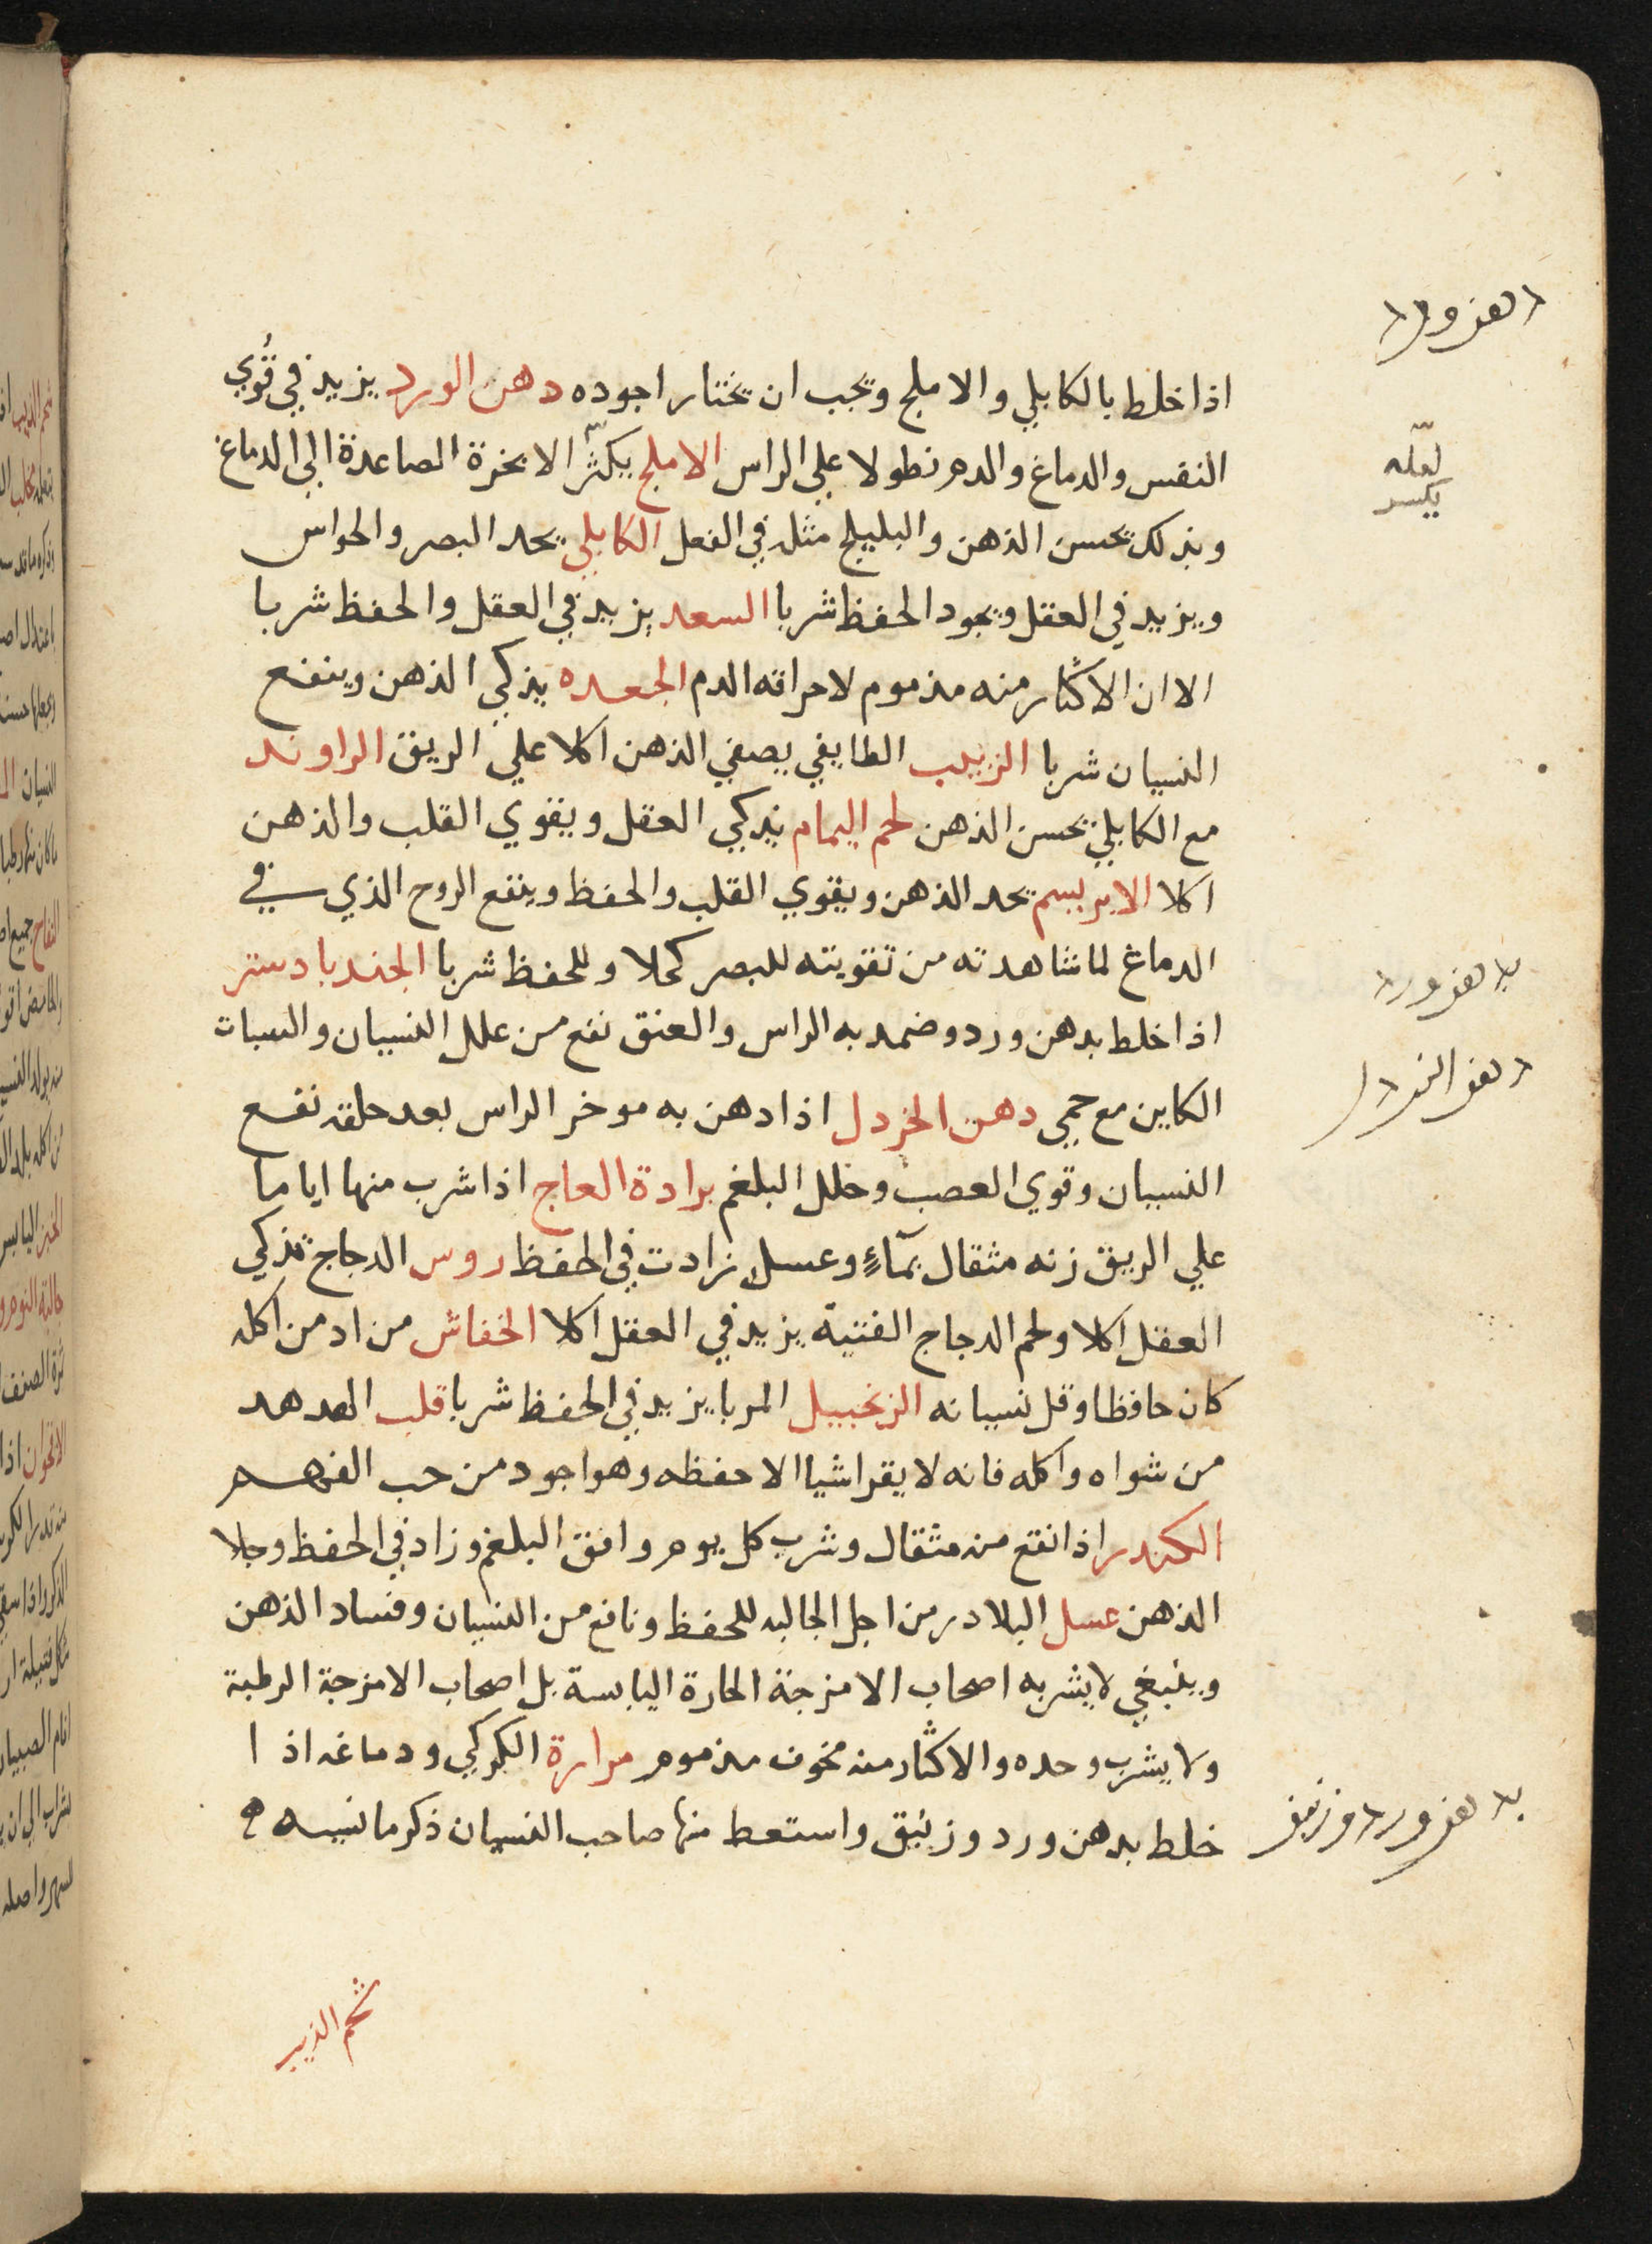 اذا خلط بالكابلي والاملج ويجب ان يختار اجوده دهن الورد يزيد في قُوي
النفس والدماغ والدم نطولا علي الراس الاملج يكثر الابخرة الصاعدة الي الدماغ
لعله
يكسر
وبذلك يحسن الذهن والبليلج مثله في الفعل الكابلي يحد البصر والحواس
ويزيد في العقل ويجود الحفظ شربا السعد يزيد في العقل والحفظ شربا
الا ان الاكثار منه مذموم لاحراقه الدم الجعده يذكي الذهن وينفع
النسيان شربا الزبيب الطايفي يصفي الذهن اكلا علي الريق الراوند
مع الكابلي يحسن الذهن لحم اليمام يذكي العقل ويقوي القلب والذهن
اكلا الابريسم يحد الذهن ويقوي القلب والحفظ وينفع الروح الذي في
الدماغ لما شاهدته من تقويته للبصر كحلا وللحفظ شربا الجندبادستر
بدهن ورد
اذا خلط بدهن ورد وضمد به الراس والعنق نفع من علل النسيان والسبات
الكاين مع حمي دهن الخردل اذا دهن به موخر الراس بعد حلقه نفع
النسيان وقوي العصب وحلل البلغم برادة العاج اذا شرب منها اياما
علي الريق زنه مثقال بمآءٍ وعسلٍ زادت في الحفظ روس الدجاج تذكي
العقل اكلا ولحم الدجاج الفتية يزيد في العقل اكلا الخفاش من ادمن اكله
كان حافظا وقل نسيانه الزنجبيل المربا يزيد في الحفظ شربا قلب الهدهد
من شواه واكله فانه لا يقرا شيا الا حفظه وهو اجود من حب الفهم
الكندر اذا نقع منه مثقال وشرب كل يوم وافق البلغم وزاد في الحفظ وجلا
الذهن عسل البلادر من اجل الجالبه للحفظ ونافع من النسيان وفساد الذهن
وينبغي لا يشربه اصحاب الامزجة الحارة اليابسة بل اصحاب الامزجة الرطبة
ولا يشرب وحده والاكثار منه مخوف مذموم مرارة الكركي ودماغه اذا
خلط بدهن ورد وزنبق واستعط منها صاحب النسيان ذكر ما نسيه
بدهن ورد وزنبق
شحم الذيب